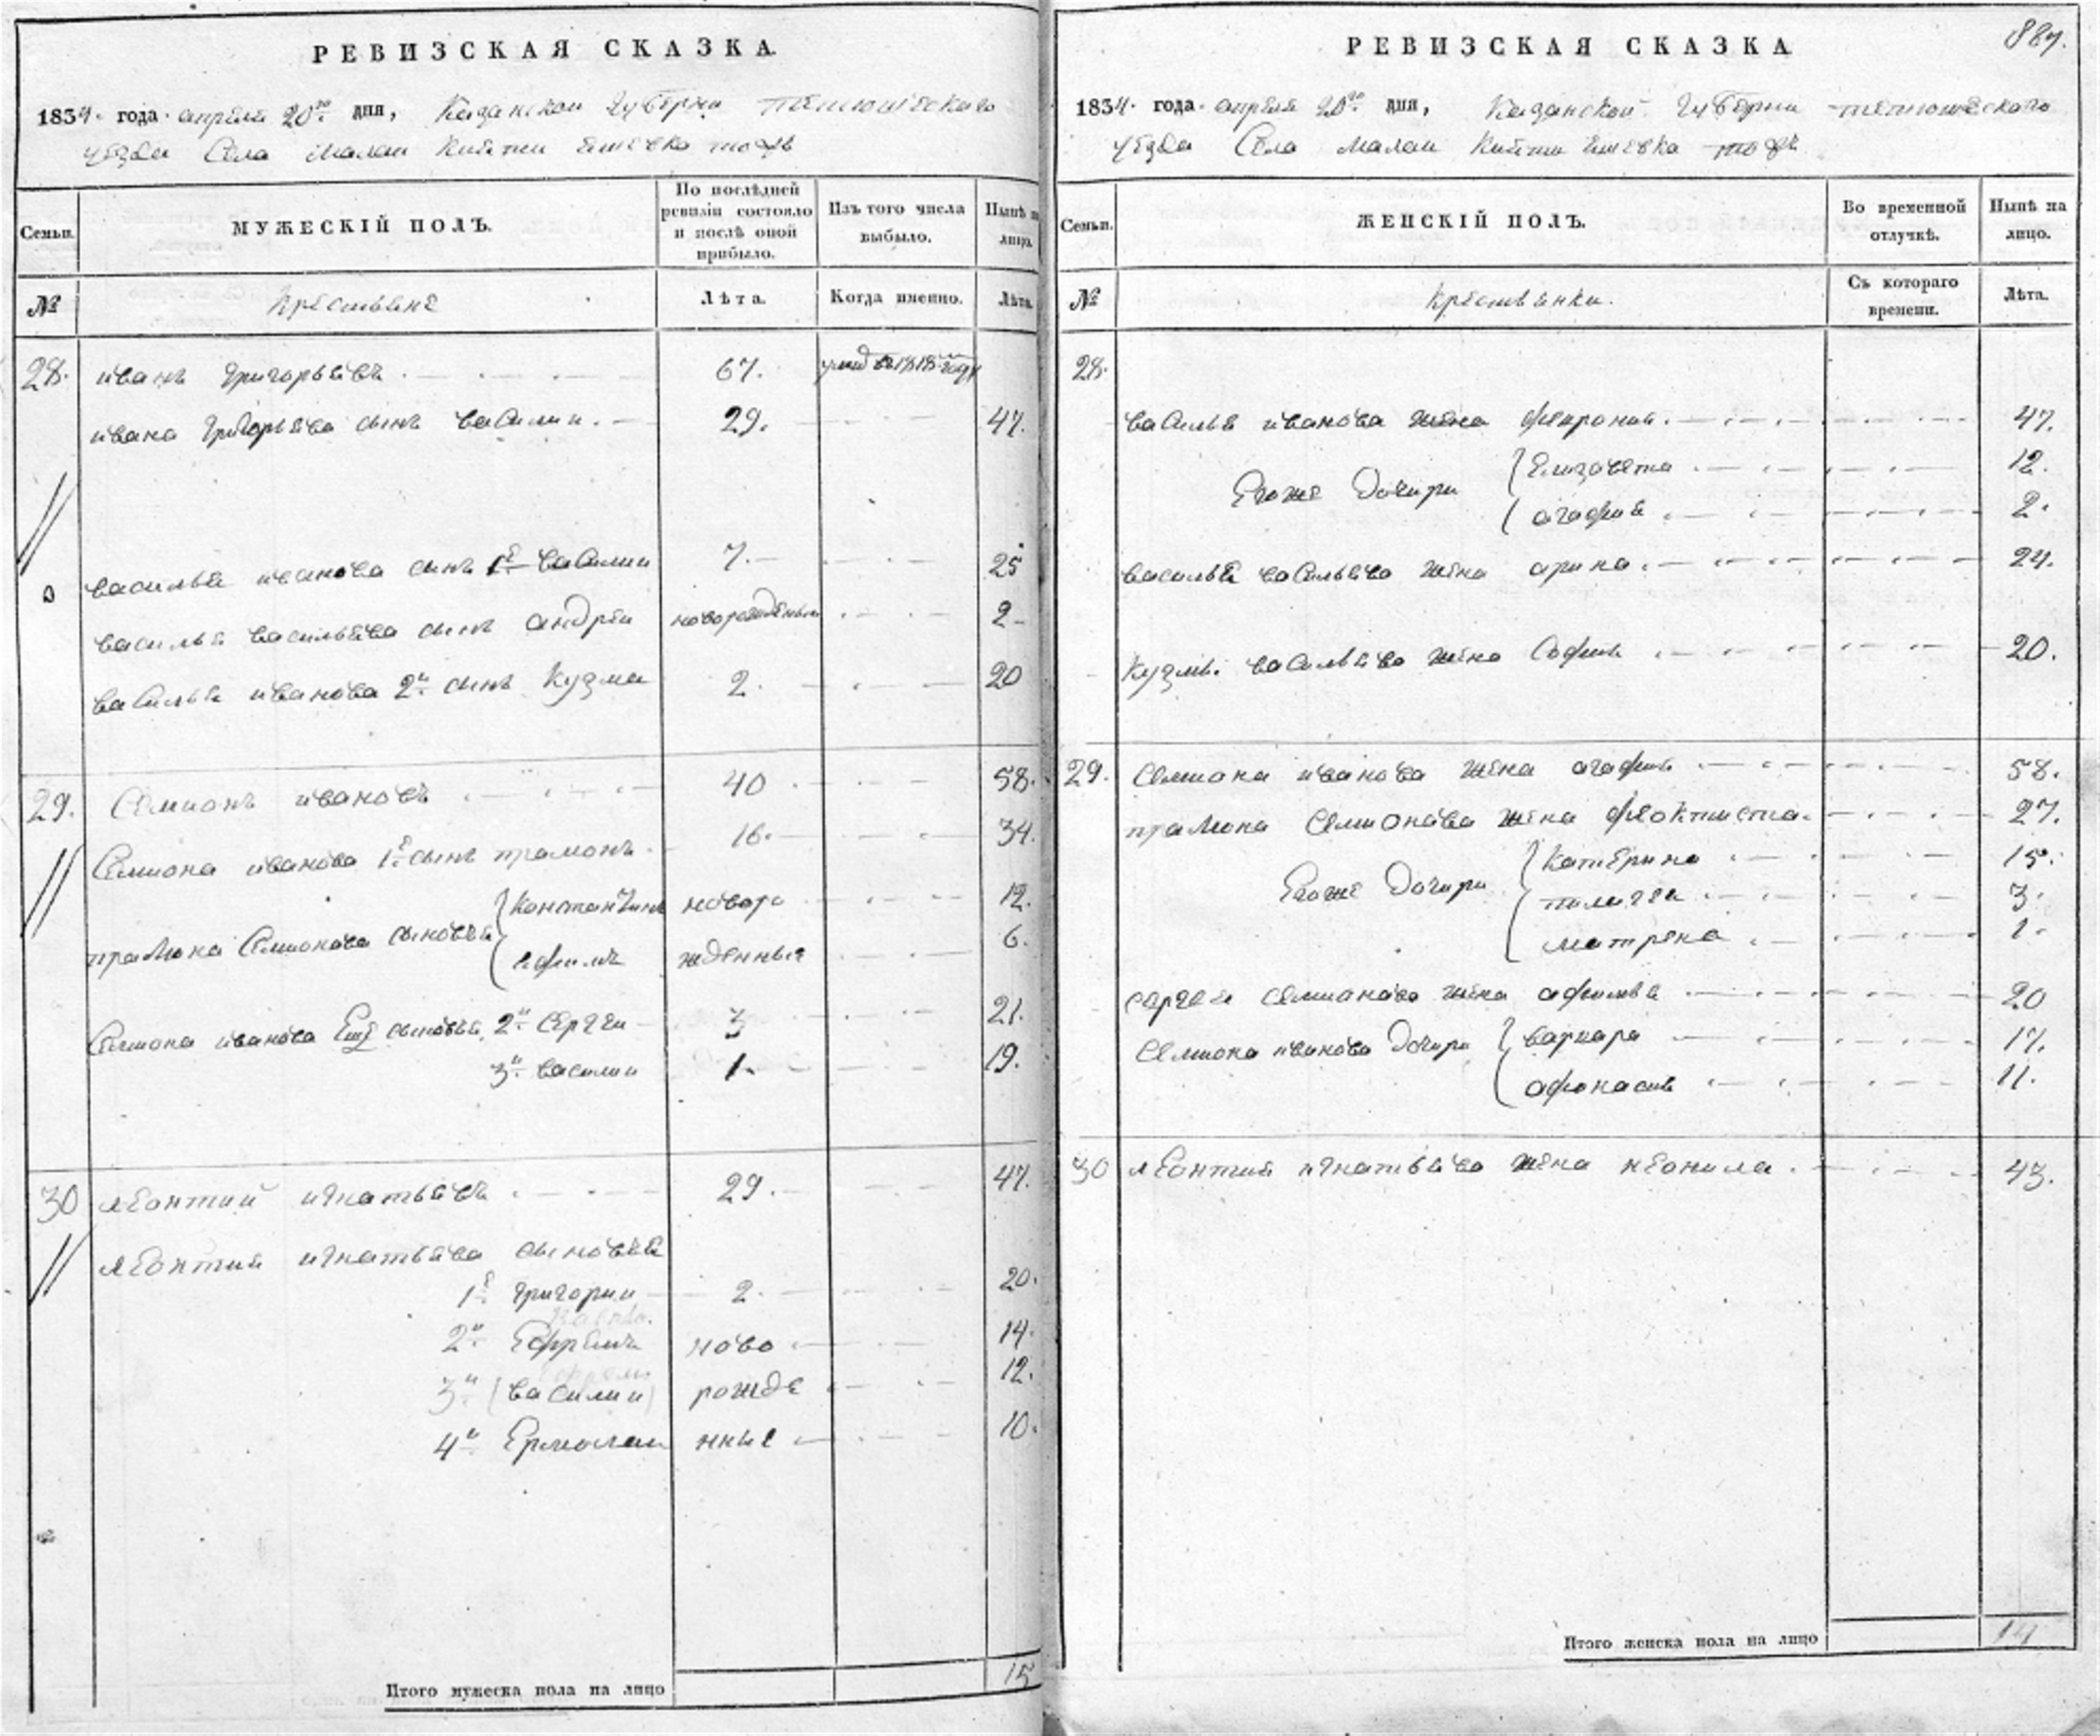 РЕВИЗСКАЯ СКАЗКА.
1834. года. апреля 20го дня, Казанской Губернии Тетюшскаго
уезда Села Малаи
Семьи.
МУЖЕСКІЙ ПОЛЪ.
По послѣдней ревизіи состояло и послѣ оной прибыло.
Изъ того числа выбыло.
Нынѣ на лицо.
№
Крестьяне
Лѣта.
Когда именно.
Лѣта.
28. иванъ григорьевъ 67. умре въ 1818м году
ивана григорьева сынъ василии. 29. 47.
василья иванова сынъ 1й василии 7. 25
василья васильева сынъ андреи новорожденыи 2
василья иванова 2й сынъ Кузма 2. 20
29. Семионъ ивановъ 40 58.
Семиона иванова 1й сынъ трамонъ 16. 34.
трамона Семионова сыновья Константинъ новоро 12.
ефимъ жденные 6.
Семиона иванова Ещё сыновья 2й Сергеи 3 21.
3й василии 1. 19.
30 леонтии игнатьевъ 29. 47.
леонтия игнатьева сыновья
1й григории 2. 20.
2й Ефремъ ново 14.
3й (василии) рожде 12.
4й Ермолаи нные 10.
Итого мужеска пола на лицо 15
РЕВИЗСКАЯ СКАЗКА
887.
1834. года. апреля 20го дня, Казанской Губернии тетюшскаго
уезда Села малаи
Семьи.
ЖЕНСКІЙ ПОЛЪ.
Во временной отлучкѣ.
Нынѣ на лицо.
№
крестьянки.
Съ котораго времени.
Лѣта.
28.
василья иванова жена феврония. 47.
Егоже дочери Елизавета 12.
агафия 2.
василья васильева жена арина. 24.
Кузмы васильева жена София 20.
29. Семиона иванова жена агафия 58.
трамона Семионова жена феоктиста. 27.
Егоже дочери Катерина 15.
пелагея 3.
матрена 1.
сергея семионова жена 20
Семиона иванова дочери варвара 17.
афонасия 11.
30 леонтия игнатьева жена неонила. 43.
Итого женска пола на лицо 14